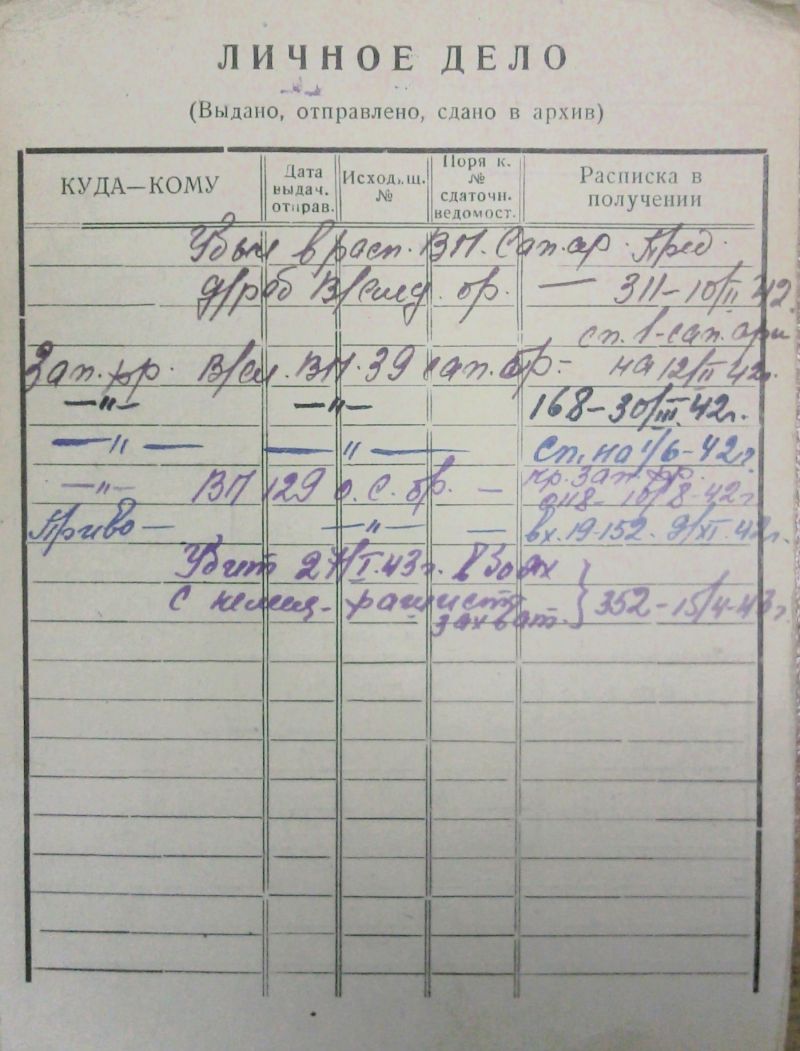 ЛИЧНОЕ ДЕЛО
(Выдано, отправлено, сдано в архив)
КУДА—КОМУ
Дата выдач. отправ.
Исходящ. №
Поряк. № сдаточн. ведомост.
Расписка в получении
Убыл в расп. ВП. Сап. ар.
В/след. бр. — 311–10/II 42.
сп. 1-сап. арм
Зап. рр. В/сл. ВП. 39 сап. бр– на 12/II 42г.
—"— —"— 168–30/III 42г.
—"— —"— Сп. на 1/6–42г.
—"— ВП 129 о. с. бр. — пр. зап. рр.
048–10/8–42г
Приво— —"— — вх. 19-152. 9/XI. 42г.
Убит 27/I.43г. в боях
с немец- фашист
захват. } 352–15/4–43г